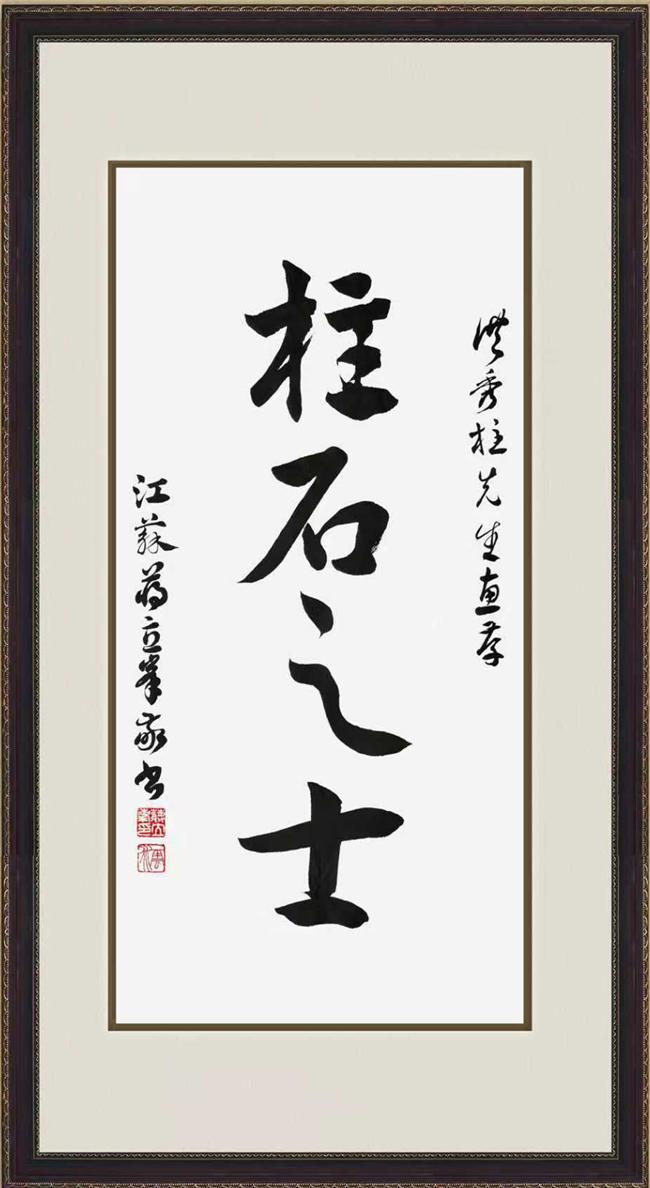 洪秀柱先生惠存
柱石之士
江苏蒋立峯敬书